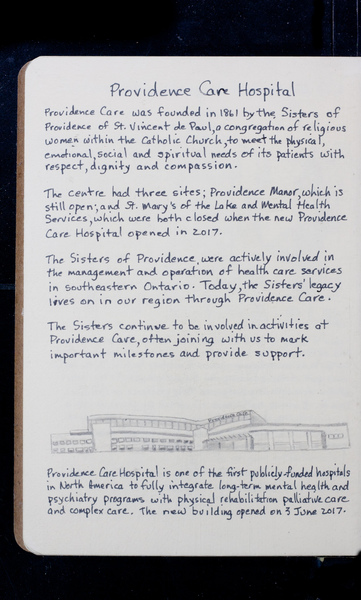 Providence Care Hospital
Providence Care was founded in 1861 by the Sisters of
Providence of St. Vincent de Paul, a congregation of religious
women within the Catholic Church, to meet the physical,
emotional, social and spiritual needs of its patients with
respect, dignity and compassion.
The centre had three sites; Providence Manor, which is
still open; and St. Mary's of the Lake and Mental Health
Services, which were both closed when the new Providence
Care Hospital opened in 2017.
The Sisters of Providence were actively involved in
the management and operation of health care services
in southeastern Ontario. Today, the Sisters' legacy
lives on in our region through Providence Care.
The Sisters continue to be involved in activities at
Providence Care, often joining with us to mark
important milestones and provide support.
Providence Care Hospital is one of the first publicly-funded hospitals
in North America to fully integrate long-term mental health and
psychiatry programs with physical rehabilitation palliative care
and complex care. The new building opened on 3 June 2017.